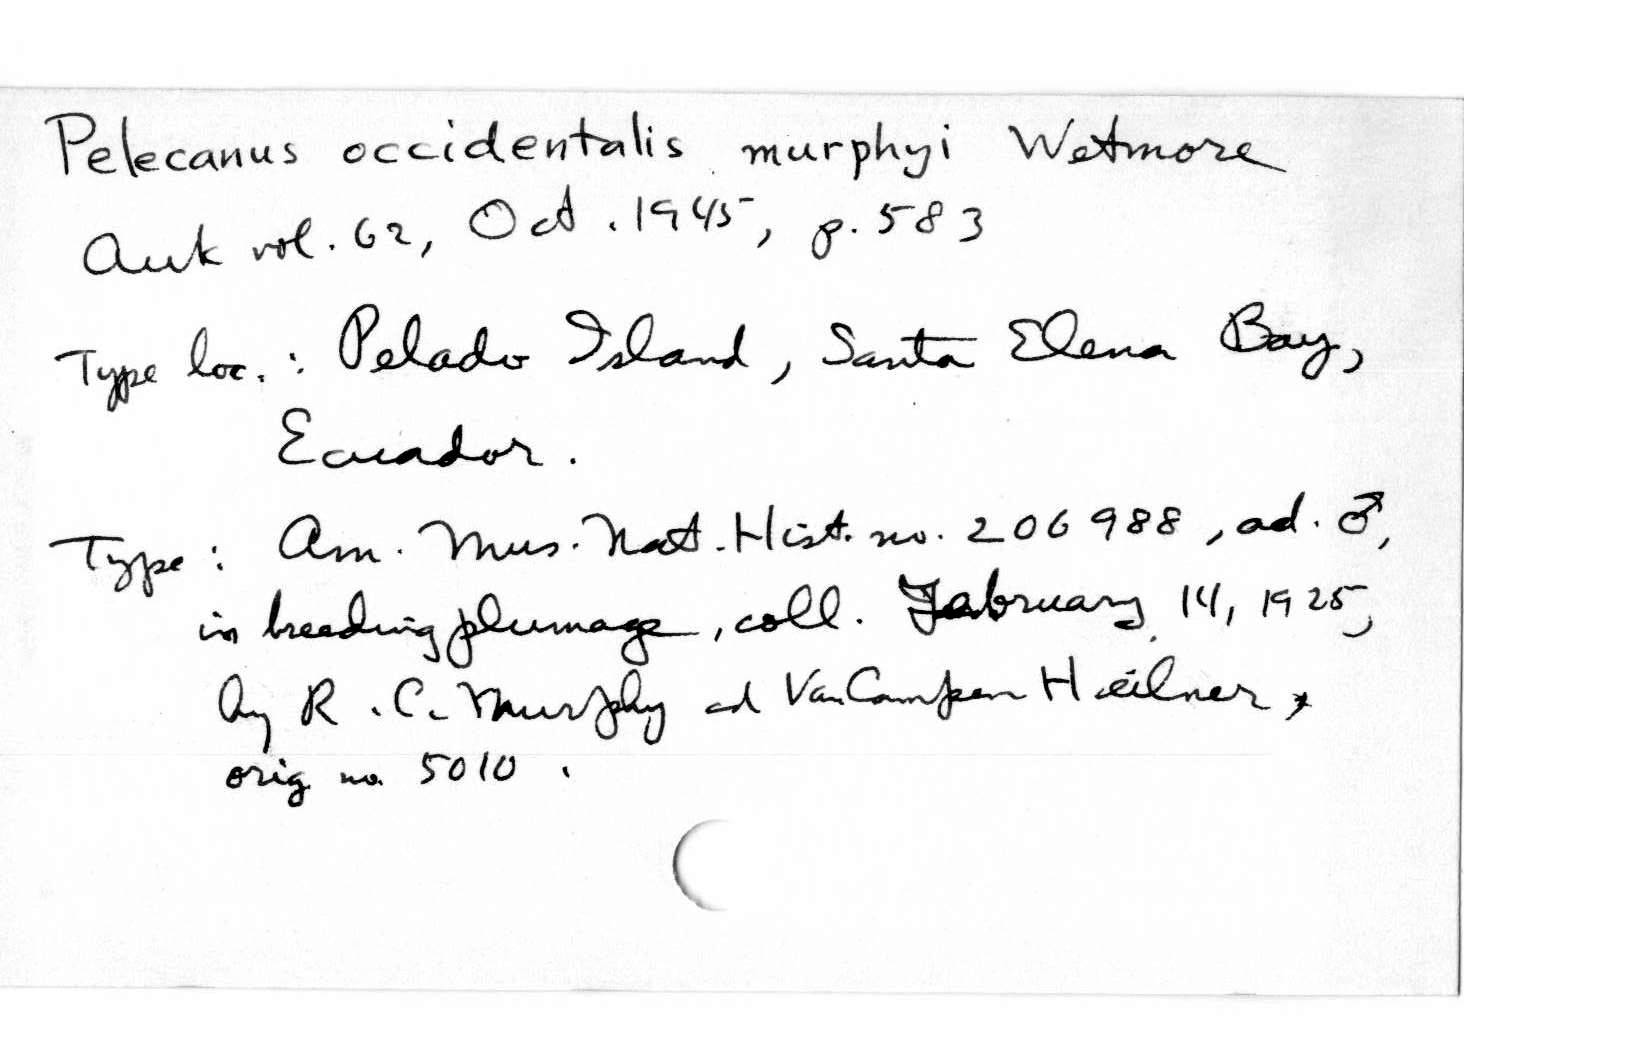 Pelecanus occidentalis murphyi Wetmore
Auk vol. 62, Oct. 1945, p. 583
Type loc. : Pelado Island, Santa Elena Bay,
Ecuador.
Type : Am. Mus. Nat. Hist. no. 206988, ad. ♂,
in breeding plumage, coll. February 14, 1925,
by R. C. Murphy and Van Campen Heilner,
orig no. 5010.